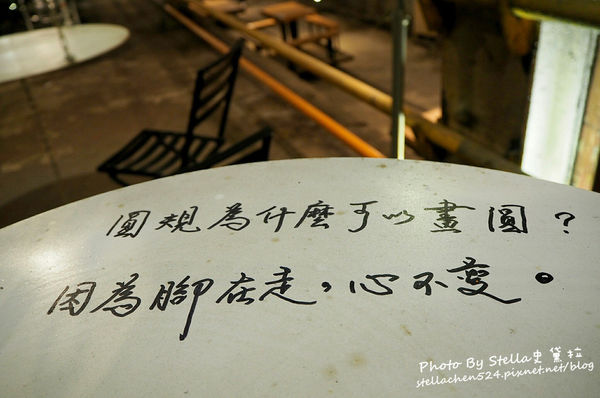 圓規為什麼可以畫圓？
因為腳在走，心不變。
Photo By Stella史黛拉
stellachen524.pixnet.net/blog